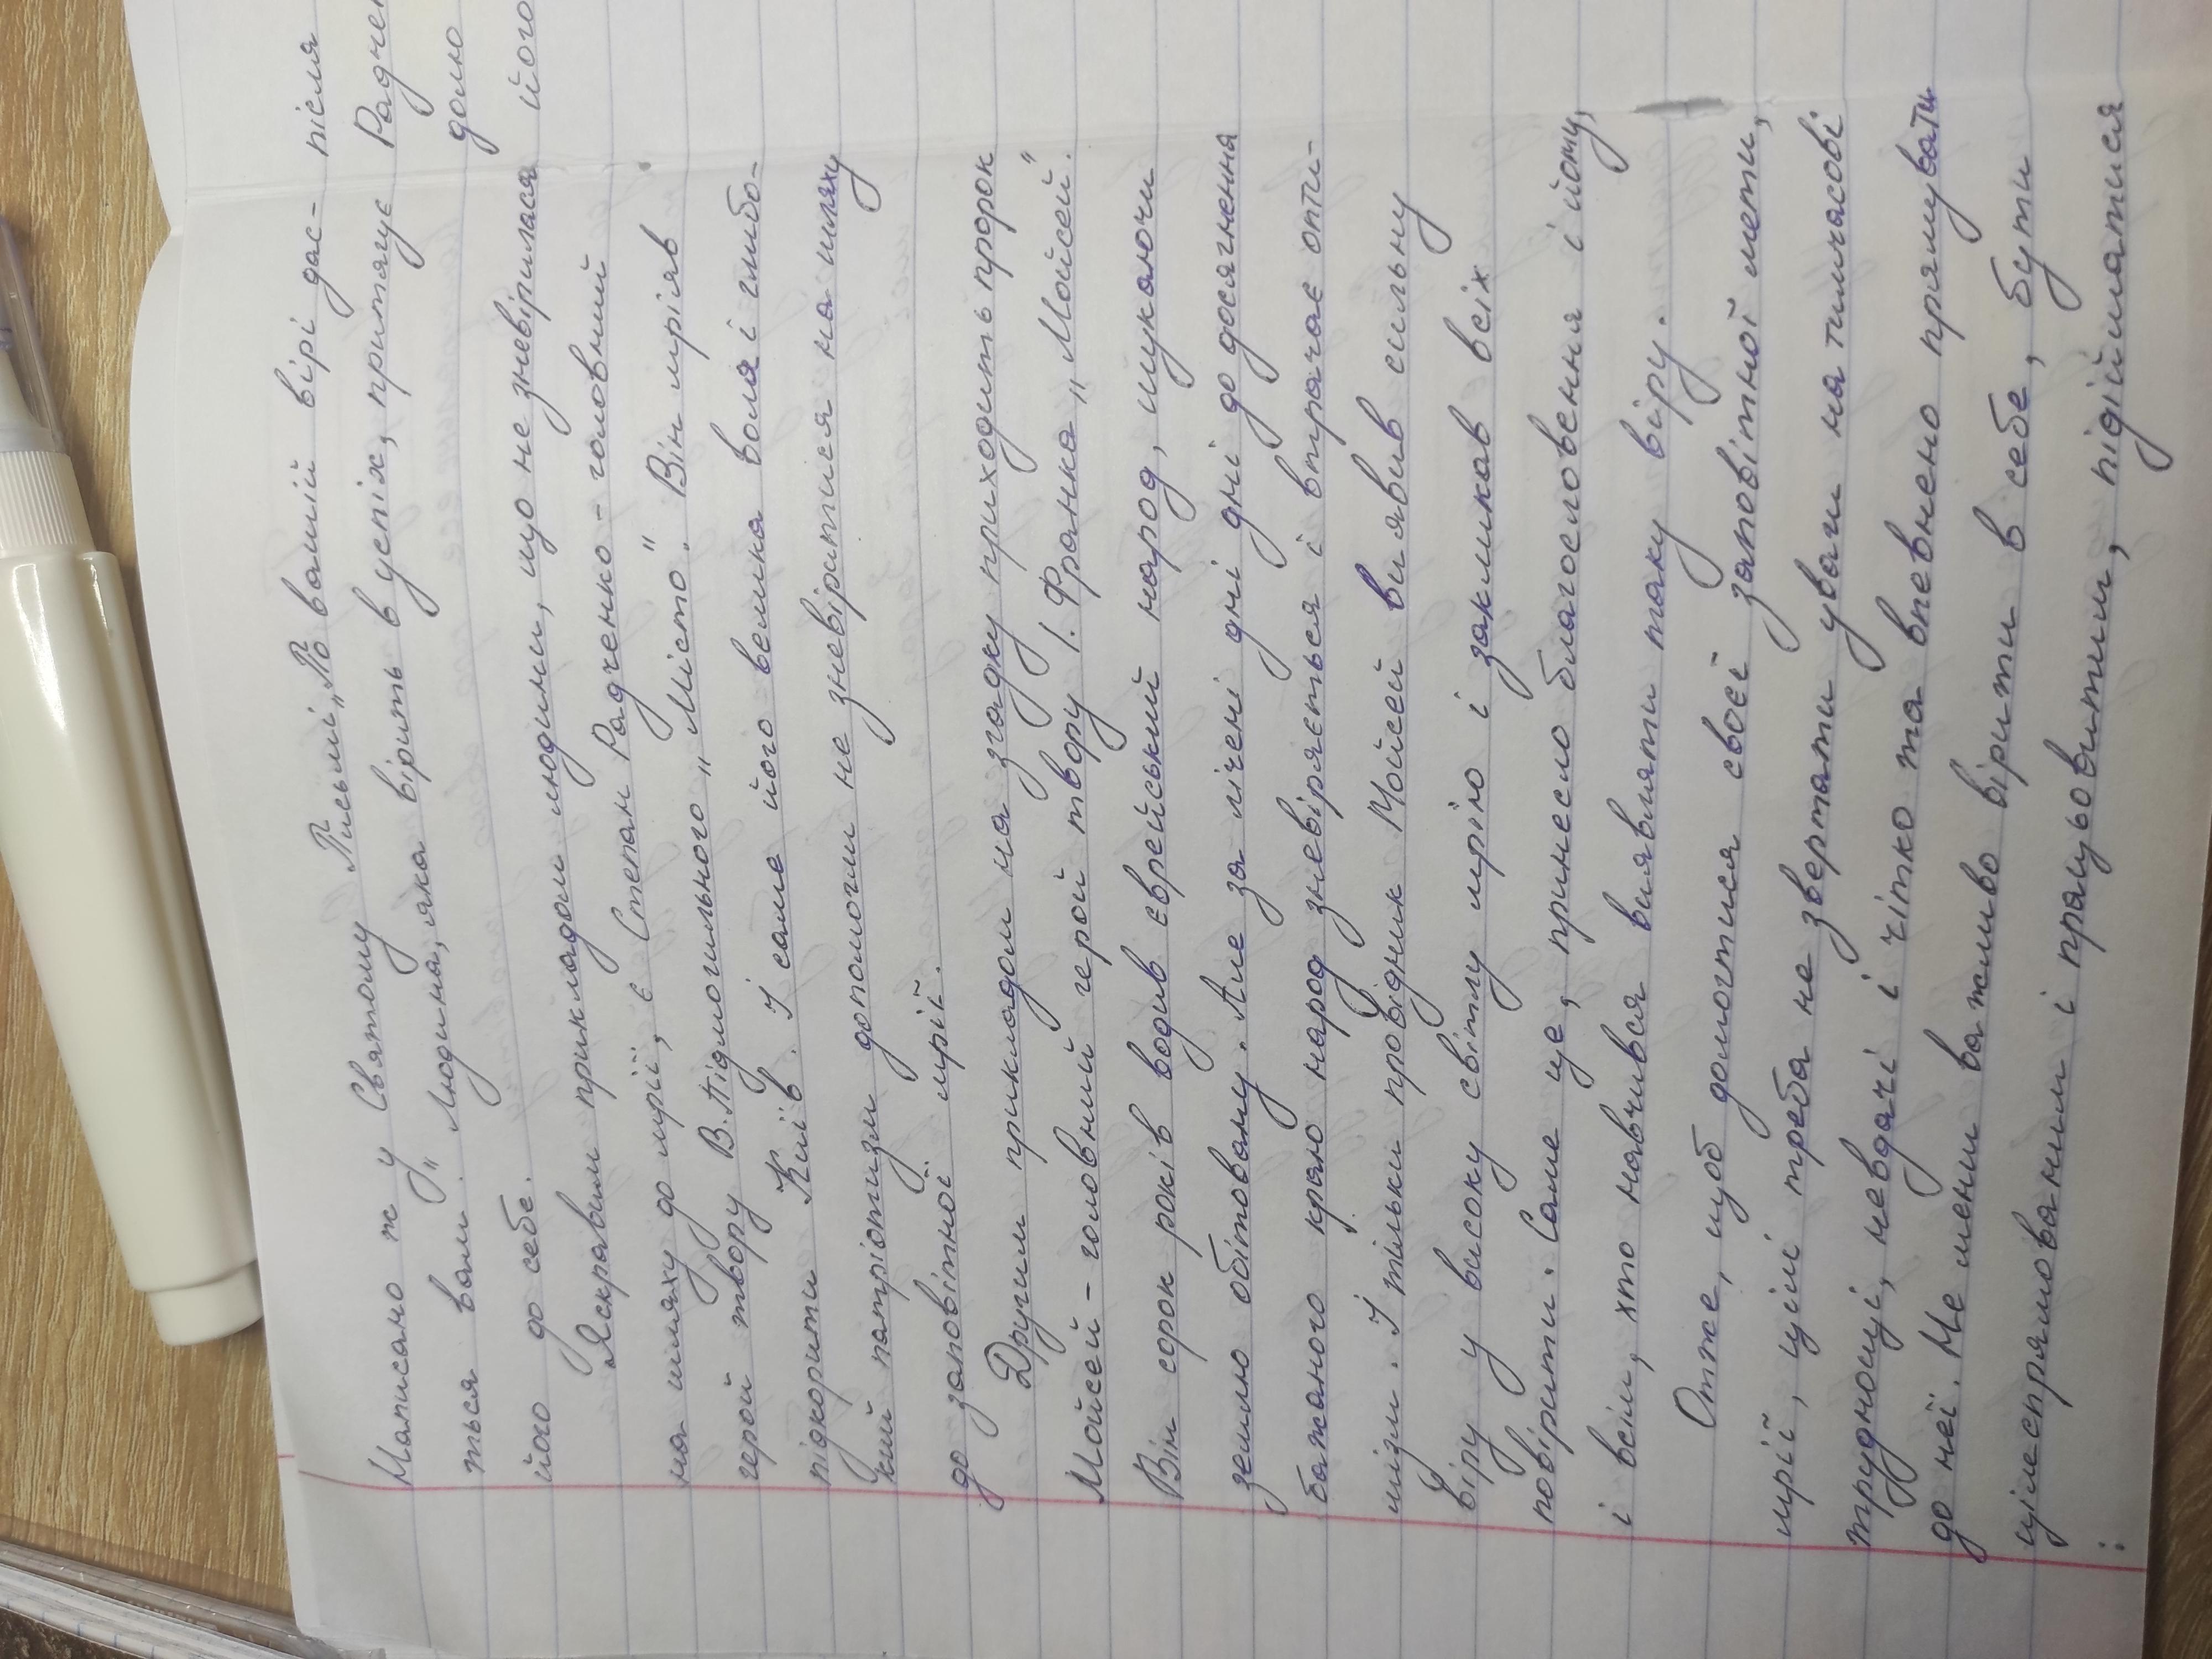 Написано ж у Святому Письмі „По вашій вірі дас-
ться вам". Людина, яка вірить в успіх, притягує
його до себе.
Яскравим прикладом людини, що не зневірилася
на шляху до мрії, є Степан Радченко - головний
герой твору В. Підмогильного „Місто". Він мріяв
підкорити Київ. І саме його велика воля і глибо-
кий патріотизм допомогли не зневіритися на шляху
до заповітної мрії.
Другим прикладом на згадку приходить пророк
Мойсей - головний герой твору І. Франка „Мойсей".
Він сорок років водив єврейський народ, шукаючи
землю обітовану. Але за лічені дні дні до досягнення
бажаного краю народ зневіряється і втрачає опти-
мізм. І тільки провідник Мойсей виявив сильну
віру у високу світлу мрію і закликав всіх
повірити. Саме це, принесло благословення і йому,
і всім, хто навчився виявляти таку віру.
Отже, щоб домогтися своєї заповітної мети,
мрії, цілі треба не звертати уваги на тимчасові
труднощі, невдачі і чітко та впевнено прямувати
до неї. Не менш важливо вірити в себе, бути
цілеспрямованим і працьовитим, підійматися
:
після
Радчен
долю
його